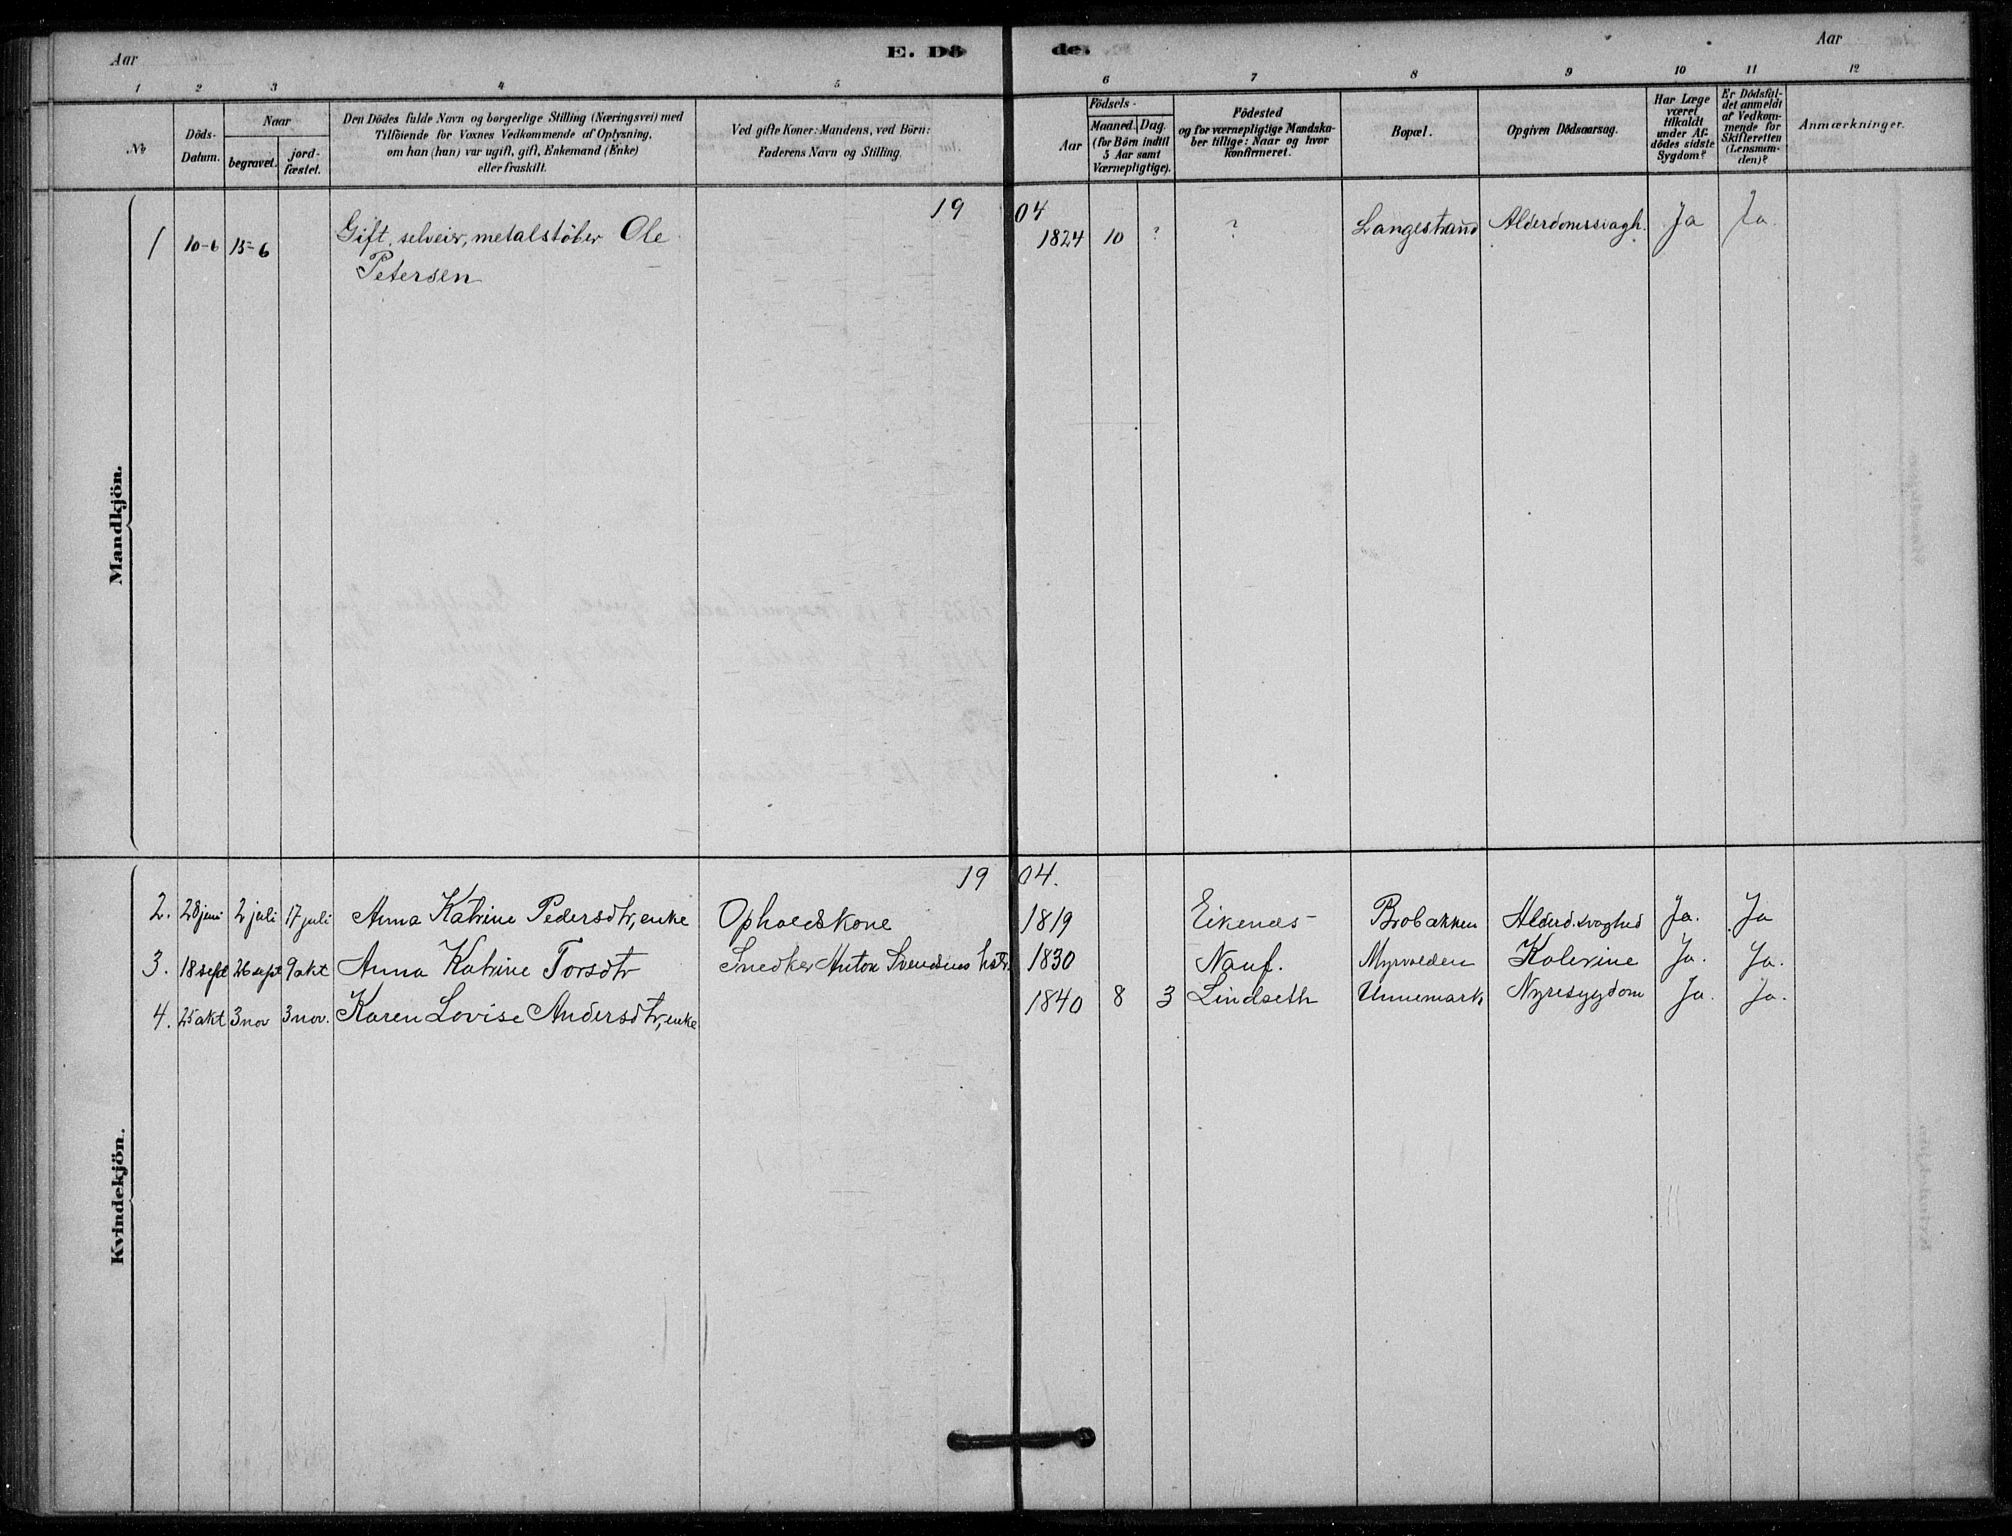 Aar E. Dö de. Aar
1 2 3 4 5 6 7 8 9 10 11 12
No
Döds-
Datum.
Naar
begravet.
jord-
fæstet.
Den Dödes fulde Navn og borgerlige Stilling (Næringsvei) med
Tilföiende for Voxnes Vedkommende af Oplysning,
om han (hun) var ugift, gift, Enkemand (Enke)
eller fraskilt.
Ved gifte Koner: Mandens, ved Börn:
Faderens Navn og Stilling.
Födsels-
Aar
Maaned.
Dag.
(for Börn indtil
5 Aar samt
Værnepligtige).
Födested
og for værnepligtige Mandska-
ber tillige: Naar og hvor
konfirmeret.
Bopæl.
Opgiven Dödsaarsag.
Har Læge
været
tilkaldt
under Af-
dödes sidste
Sygdom?
Er Dödsfal-
det anmeldt
af Vedkom-
mende for
Skifteretten
(Lensman-
den)?
Anmærkninger.
Mandkjön.
19 04
1 10-6 15-6 Gift, selveier, metalstöber Ole 1824 10 ? ? Langestrand Alderdomssvagh. Ja Ja.
Petersen
Kvindekjön.
19 04.
2. 28 juni 2 juli 17 juli Anna Katrine Pedersdtr, enke Opholdskone 1819 Eikenæs Brobakken Alderd.svaghed Ja. Ja
3. 18 sept 26 sept 9 okt Anna Katrine Torsdtr Snedker Anton Svendsens hstr. 1830 Nauf. Myrvolden Kolerine Ja. Ja.
4. 25 okt 3 nov 3 nov. Karen Lovise Andersdtr, enke 1840 8 3 Lindseth Unnemark Nyresygdom Ja. Ja.